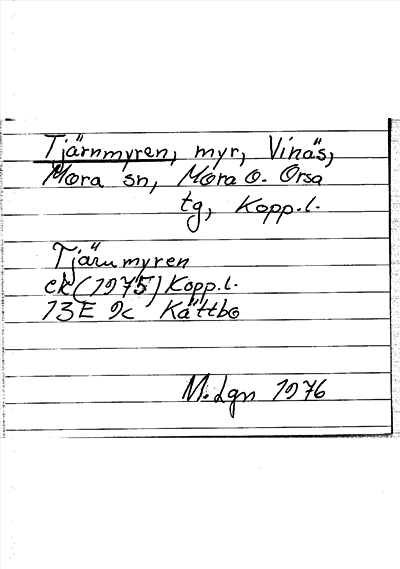 Tjärnmyren, myr, Vinäs,
Mora sn, Mora o. Orsa
tg, Kopp.l.
Tjärnmyren
ek (1975) Kopp.l.
13E 9c Kättbo
M.Lgn 1976